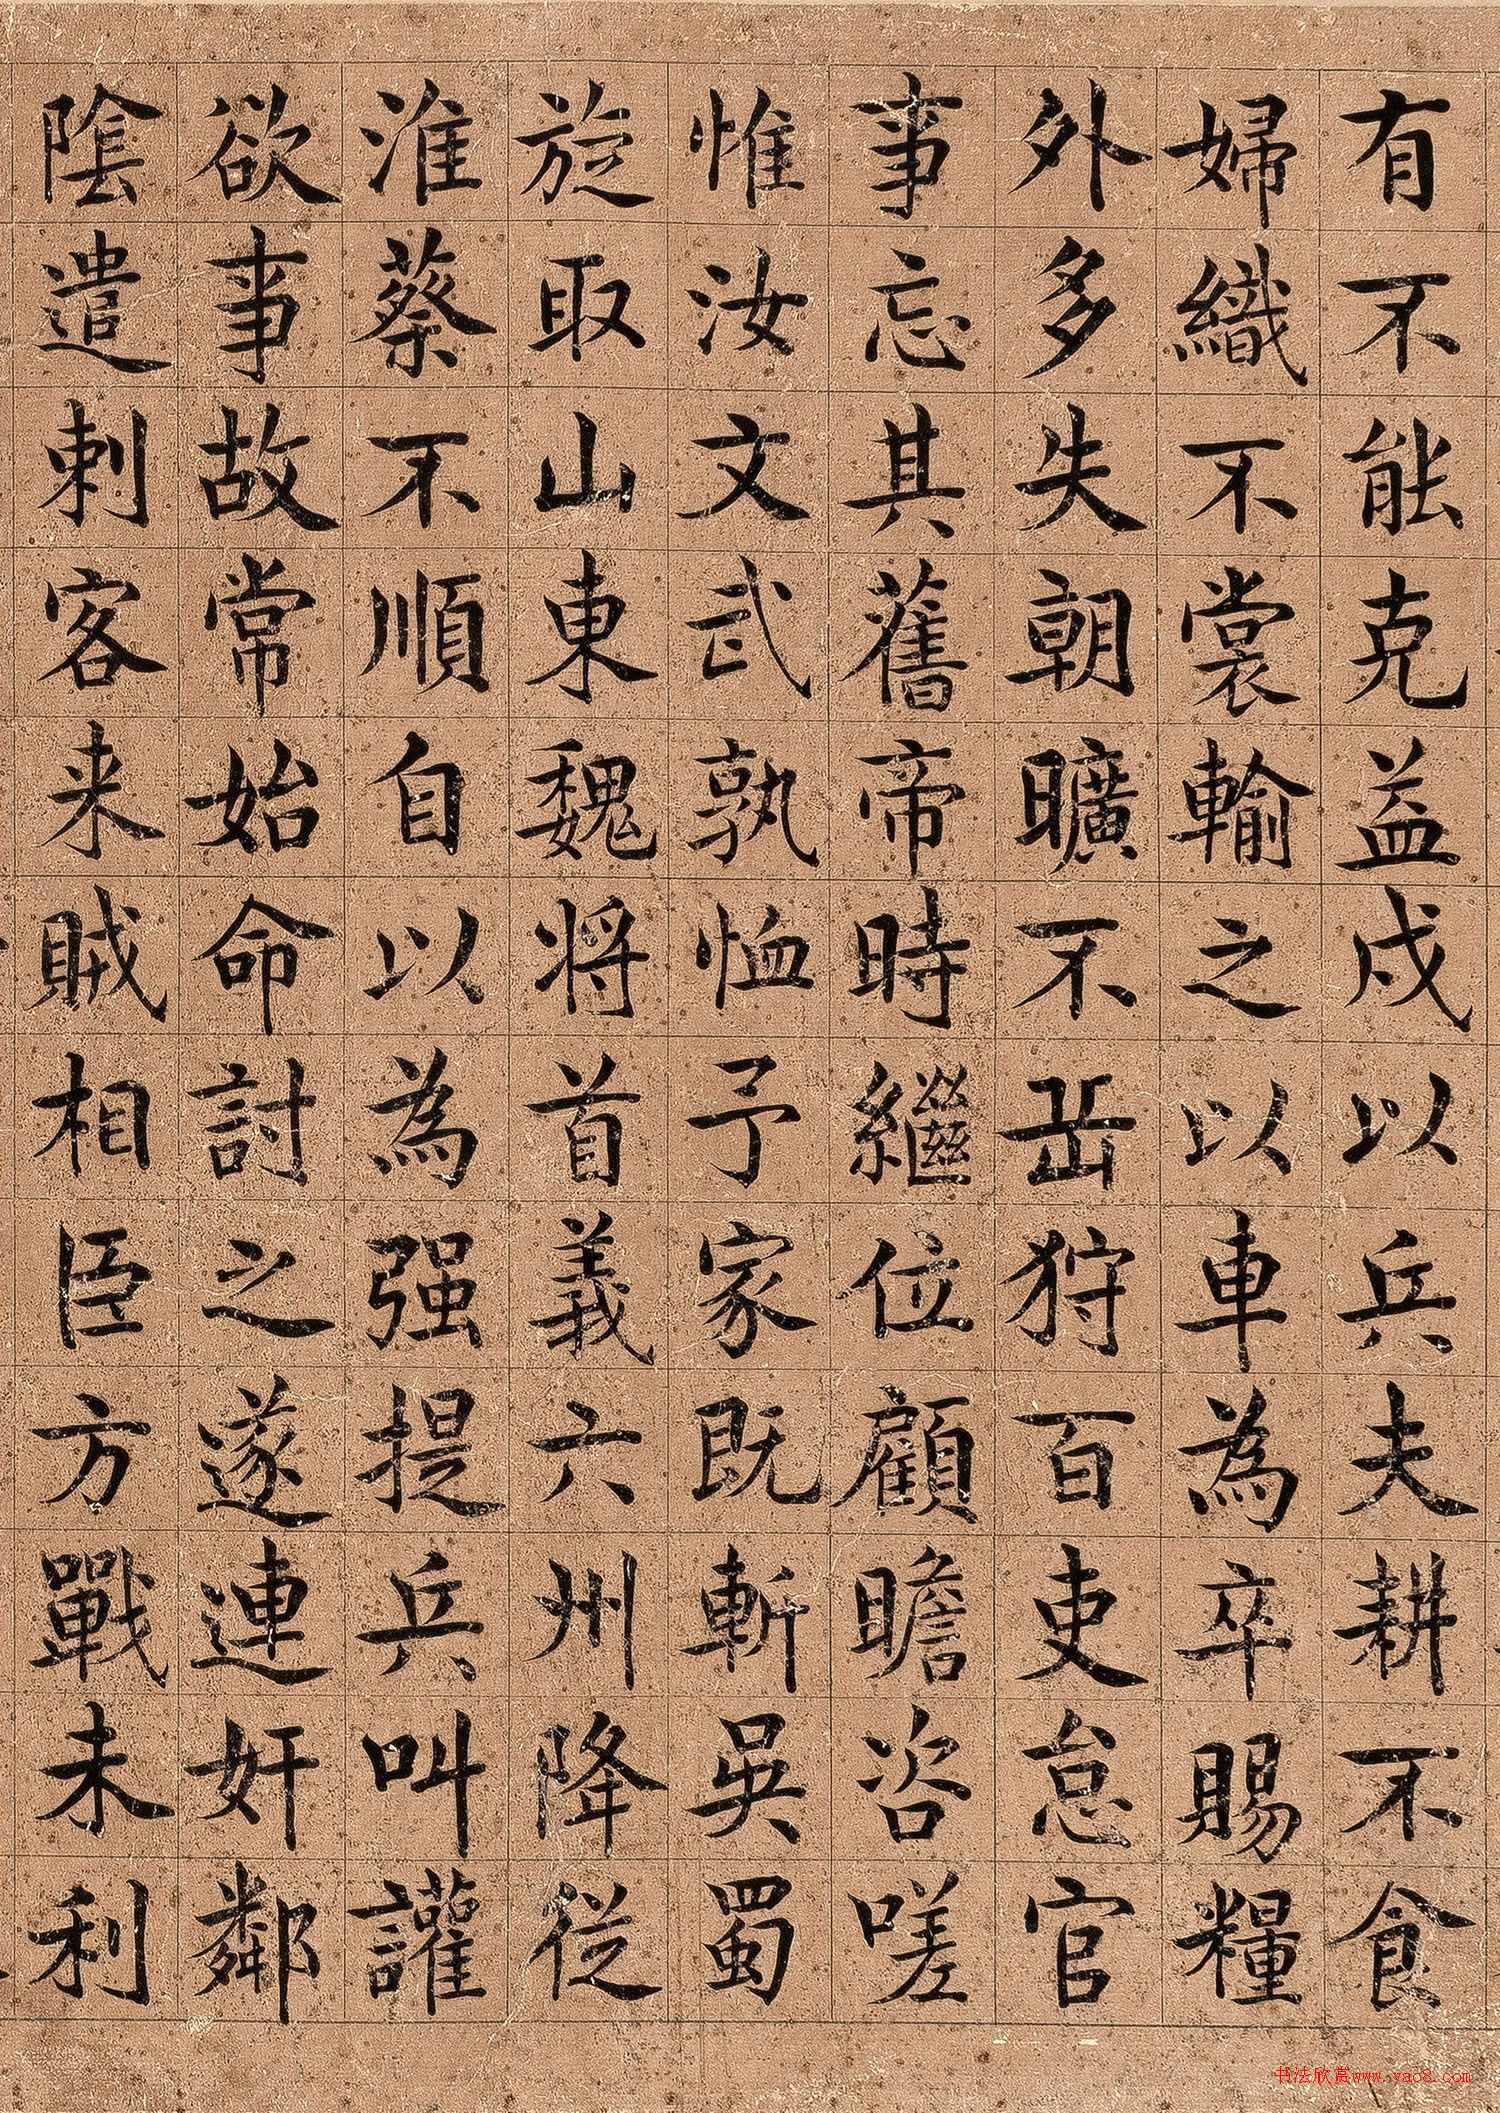 有不能克益戍以兵夫耕不食
婦織不裳輸之以車為卒賜糧
外多失朝曠不岳狩百吏怠官
事忘其舊帝時繼位顧瞻咨嗟
惟汝文武孰恤予家既斬吳蜀
旋取山東魏將首義六州降從
淮蔡不順自以為强提兵叫讙
欲事故常始命討之遂連奸鄰
陰遣刺客来賊相臣方戰未利
书法欣赏www.yac8.com